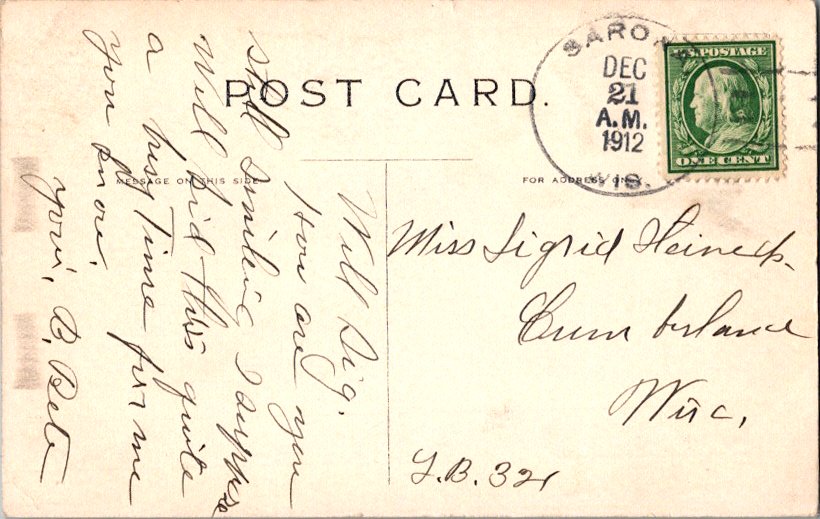 POST CARD.
MESSAGE ON THIS SIDE
FOR ADDRESS ONLY
BARON
DEC
21
A.M.
1912
WIS.
U.S. POSTAGE
ONE CENT
Miss Sigrid
Cumberland
Wisc,
L.B. 321
Well Sig.
How are you
still smiling I suppose
Well Sid this quite
a busy Time for me
you know.
your, B. Beta